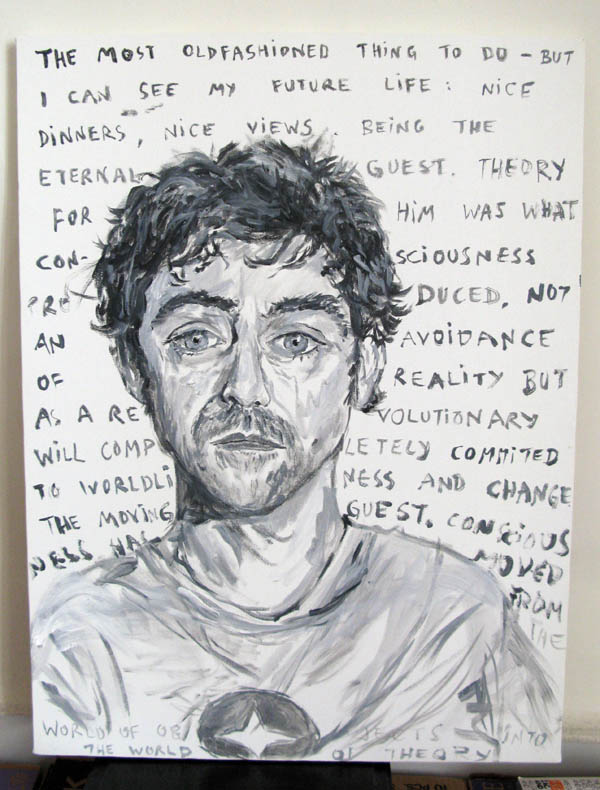 THE MOST OLDFASHIONED THING TO DO – BUT
I CAN SEE MY FUTURE LIFE: NICE
DINNERS, NICE VIEWS. BEING THE
ETERNAL GUEST. THEORY
FOR HIM WAS WHAT
CON- SCIOUSNESS
PRO DUCED, NOT
AN AVOIDANCE
OF REALITY BUT
AS A RE VOLUTIONARY
WILL COMP LETELY COMMITED
TO WORLDLI NESS AND CHANGE
THE MOVING GUEST. CONSCIOUS
NESS HAS MOVED
FROM
THE
WORLD OF OB JECTS INTO
THE WORLD OF THEORY